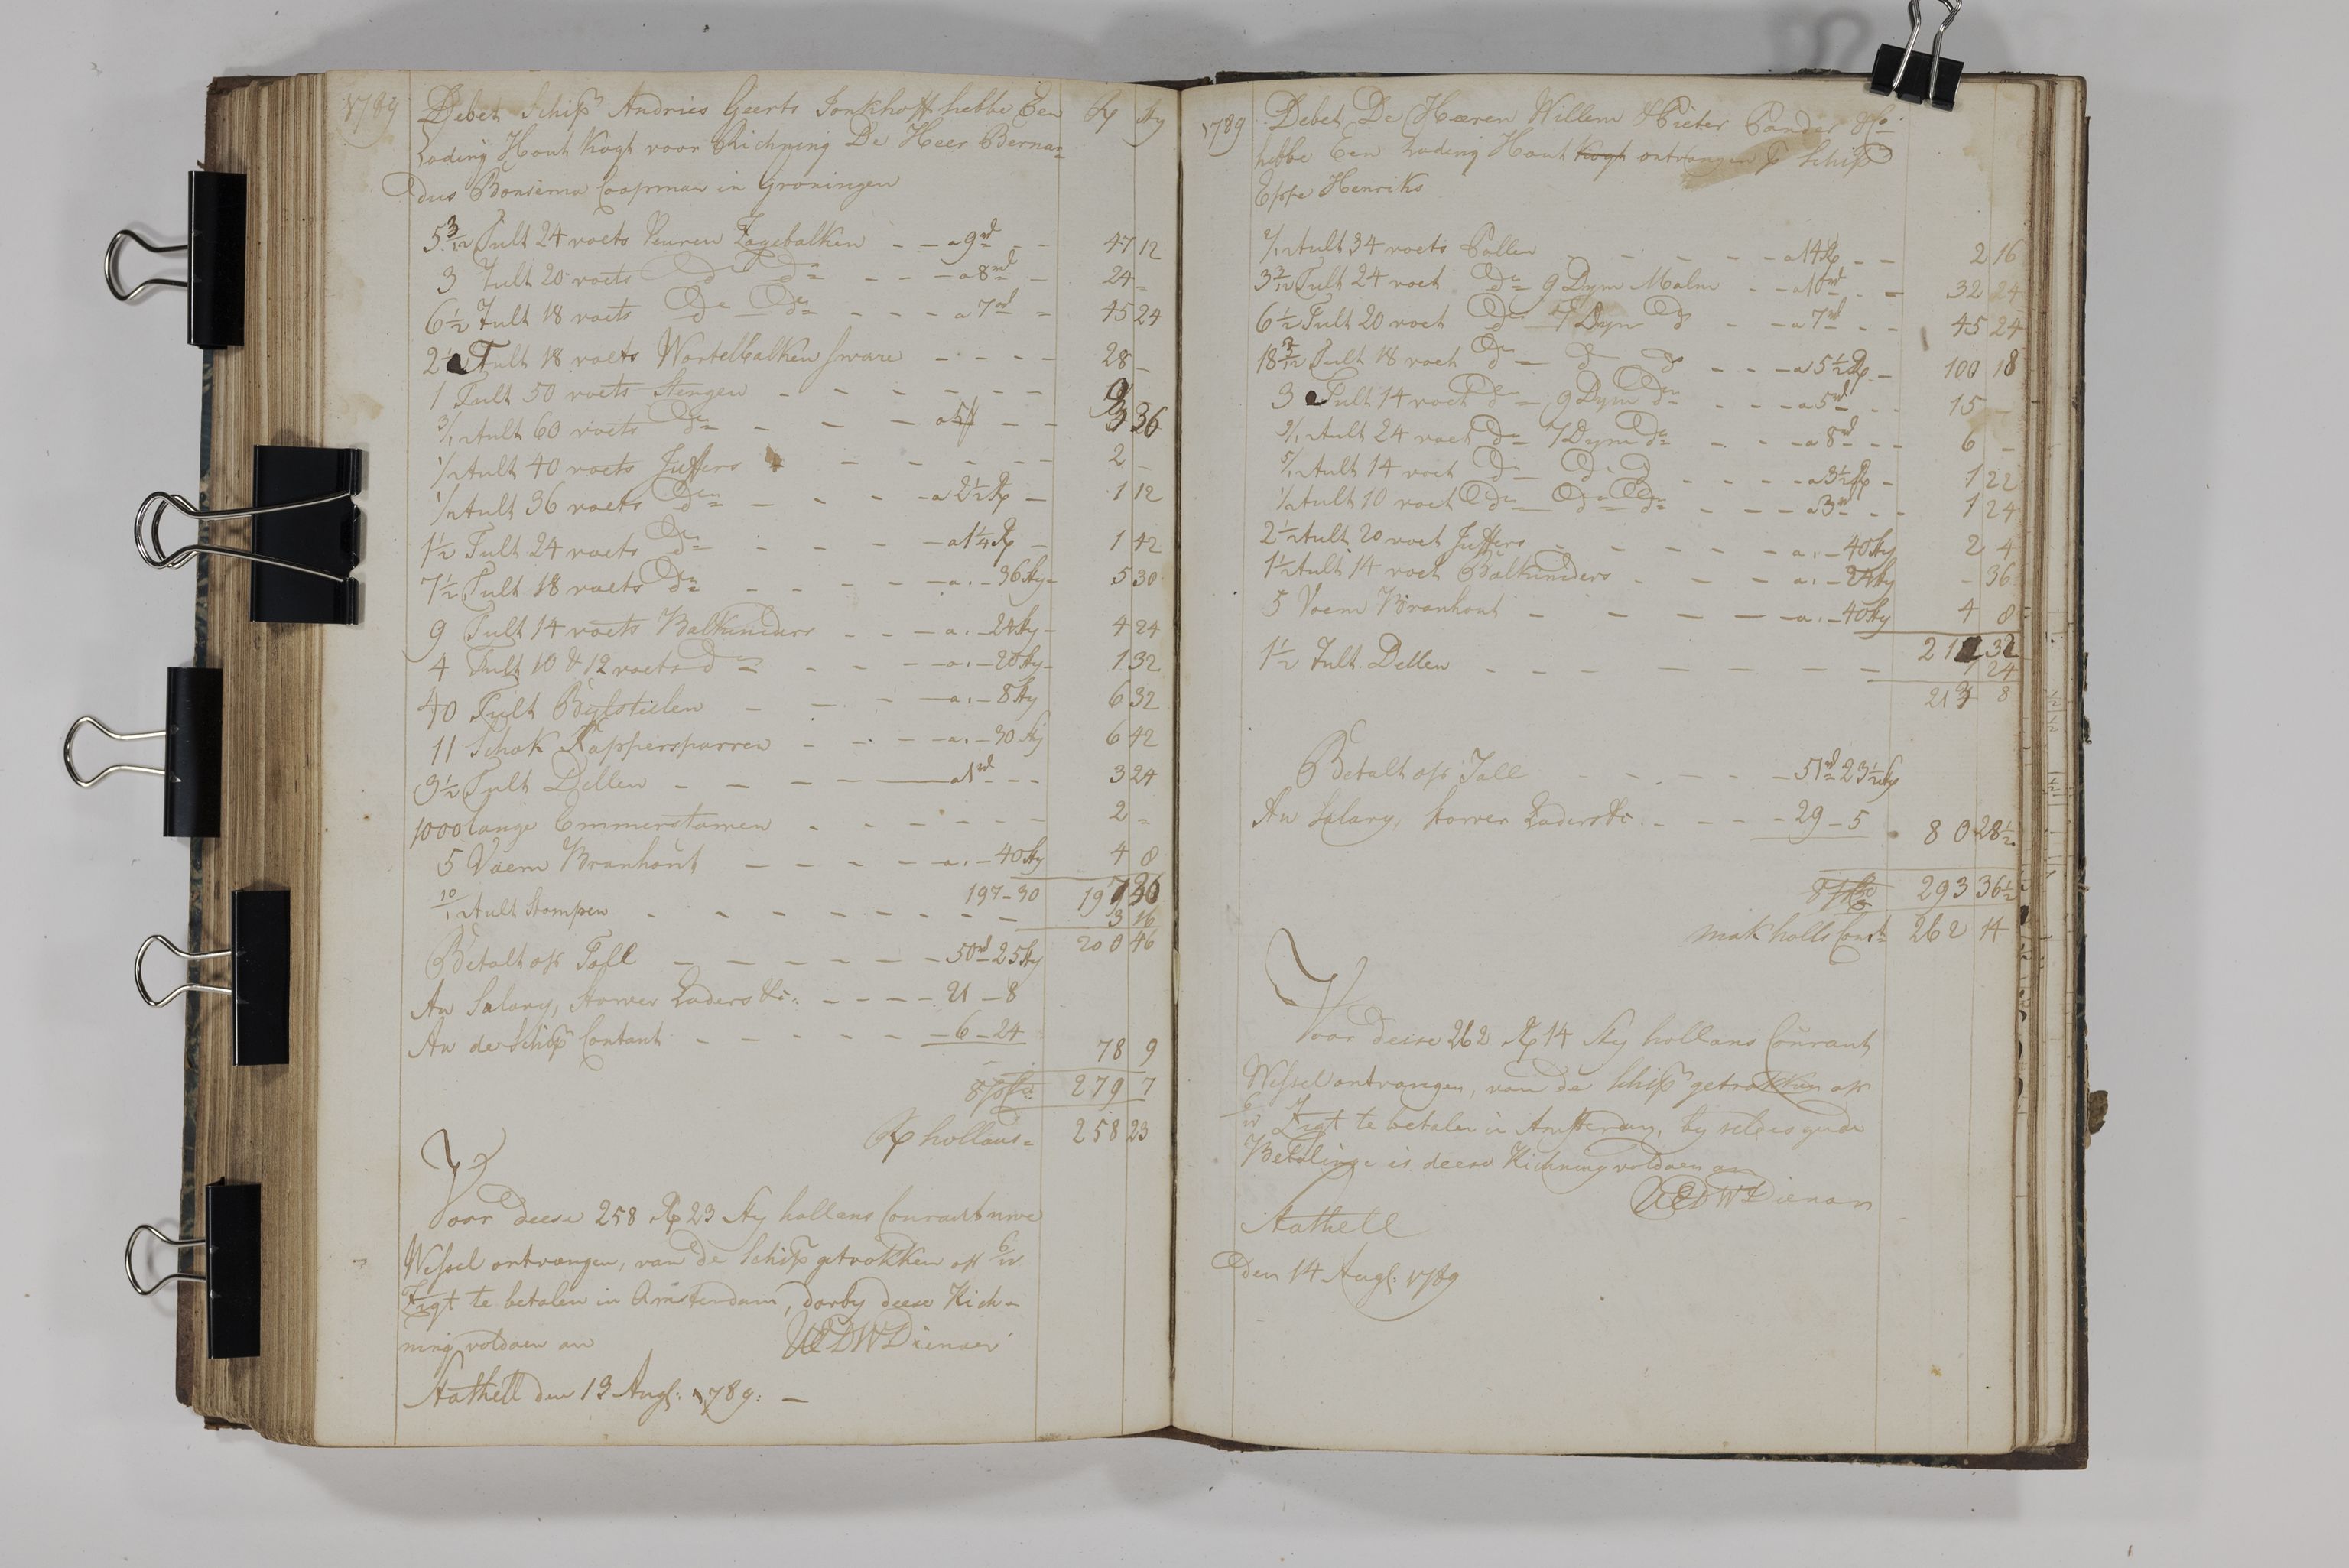 1789 Debet Schipr Andries Geerts Jonkhoff hebbe Een Rx Sty
Lading Hout Kogt voor Richning De Heer Bernar=
dus Bonsema Coopman in Groningen
5 3/12 Tult 24 voets Veuren Zagebalken - - a 9 rd - - 47 12
3 Tult 20 voets Do Do - - - a 8 rd - 24 -
6½ Tult 18 voets Do Do - - - a 7 rd - 45 24
2½ Tult 18 voets Wortelbalken sware - - - - 28 -
1 Tult 50 voets Stengen - - - - - - 9
3/12 Tult 60 voets Do - - - a 5 - - 3 36
1/2 Tult 40 voets Juffers - - - - - 2 -
1/2 Tult 36 voets Do - - - a 2½ Rx - 1 12
1½ Tult 24 voets Do - - - a 1¼ Rx - 1 42
7½ Tult 18 voets Do - - - a. - 36 Sty - 5 30
9 Tult 14 voets Balkunders - - a. - 24 Sty - 4 24
4 Tult 10 & 12 voets Do - - - a. - 20 Sty - 1 32
40 Tult Bylstielen - - - a. - 8 Sty 6 32
11 Schok Kappersparren - - - a. - 30 Sty 6 42
3½ Tult Dellen - - - a 1 rd - - 3 24
1000 lange Emmerstawen - - - - - - 2 -
5 Vaem Branhout - - - - a. - 40 Sty 4 8
197 - 30 197 30
10/12 Tult Stompen - - - - - - - - 3 16
200 46
Betalt op Toll - - - - - - 50 rd 25 Sty
An Salary, Stower Laders &c: - - - - 21 - 8
An de Schipr Contant - - - - - 6 - 24
78 9
279 7
Rx hollans = 258 23
Voor deese 258 Rx 23 Sty hollans Courant uwe
Wessel ontvangen, van de Schipr getrokken op 6/w
Zigt te betalen in Amsterdam, dorby deese Rich=
ning voldaen an UEDWDienaer
Stathell den 13 Augs: 1789: -
1789 Debet De Heeren Willem & Pieter Pander & Co
hebbe Een Lading Hout kogt ontvangen p Schipr
Eppe Henriks
2/12 Tult 34 voets Pallen - - - - - a 14 Rx - - 2 16
3 3/12 Tult 24 voet Do 9 Dym Malm - - a 10 rd - - 32 24
6½ Tult 20 voet Do 7 Dym Do - - a 7 rd - - 45 24
18 3/12 Tult 18 voet Do - Do Do - - - a 5½ Rx - 100 18
3 Tult 14 voet Do - 9 Dym Do - - - a 5 rd - - 15 -
9/12 Tult 24 voet Do 7 Dym Do - - - a 8 rd - - 6 -
5/12 Tult 14 voet Do Do Do - - - - a 3½ Rx - 1 22
½ Tult 10 voet Do Do Do - - - a 3 rd - - 1 24
2½ Tult 20 voet Juffers - - - - - a. - 40 Sty 2 4
1½ Tult 14 voet Balkunders - - - a. - 24 Sty - 36
5 Vaem Branhout - - - - - a. - 40 Sty 4 8
1½ Tult. Dellen - - - - - - -
212 32
1 24
213 8
Betalt op Toll - - - - - 51 rd 23½ Sty
An Salary, Stower Laders &c. - - - - 29 - 5 80 28½
293 36½
mak holls Cour.t 262 14
Voor deese 262 Rx 14 Sty hollans Courant
Wessel ontvangen, van de Schipr getrokken op
6/w Zigt te betalen in Amsterdam, by welkes goede
Betalinge is deese Richning voldaen an
UEDWDienar
Stathell
den 14 Augs: 1789